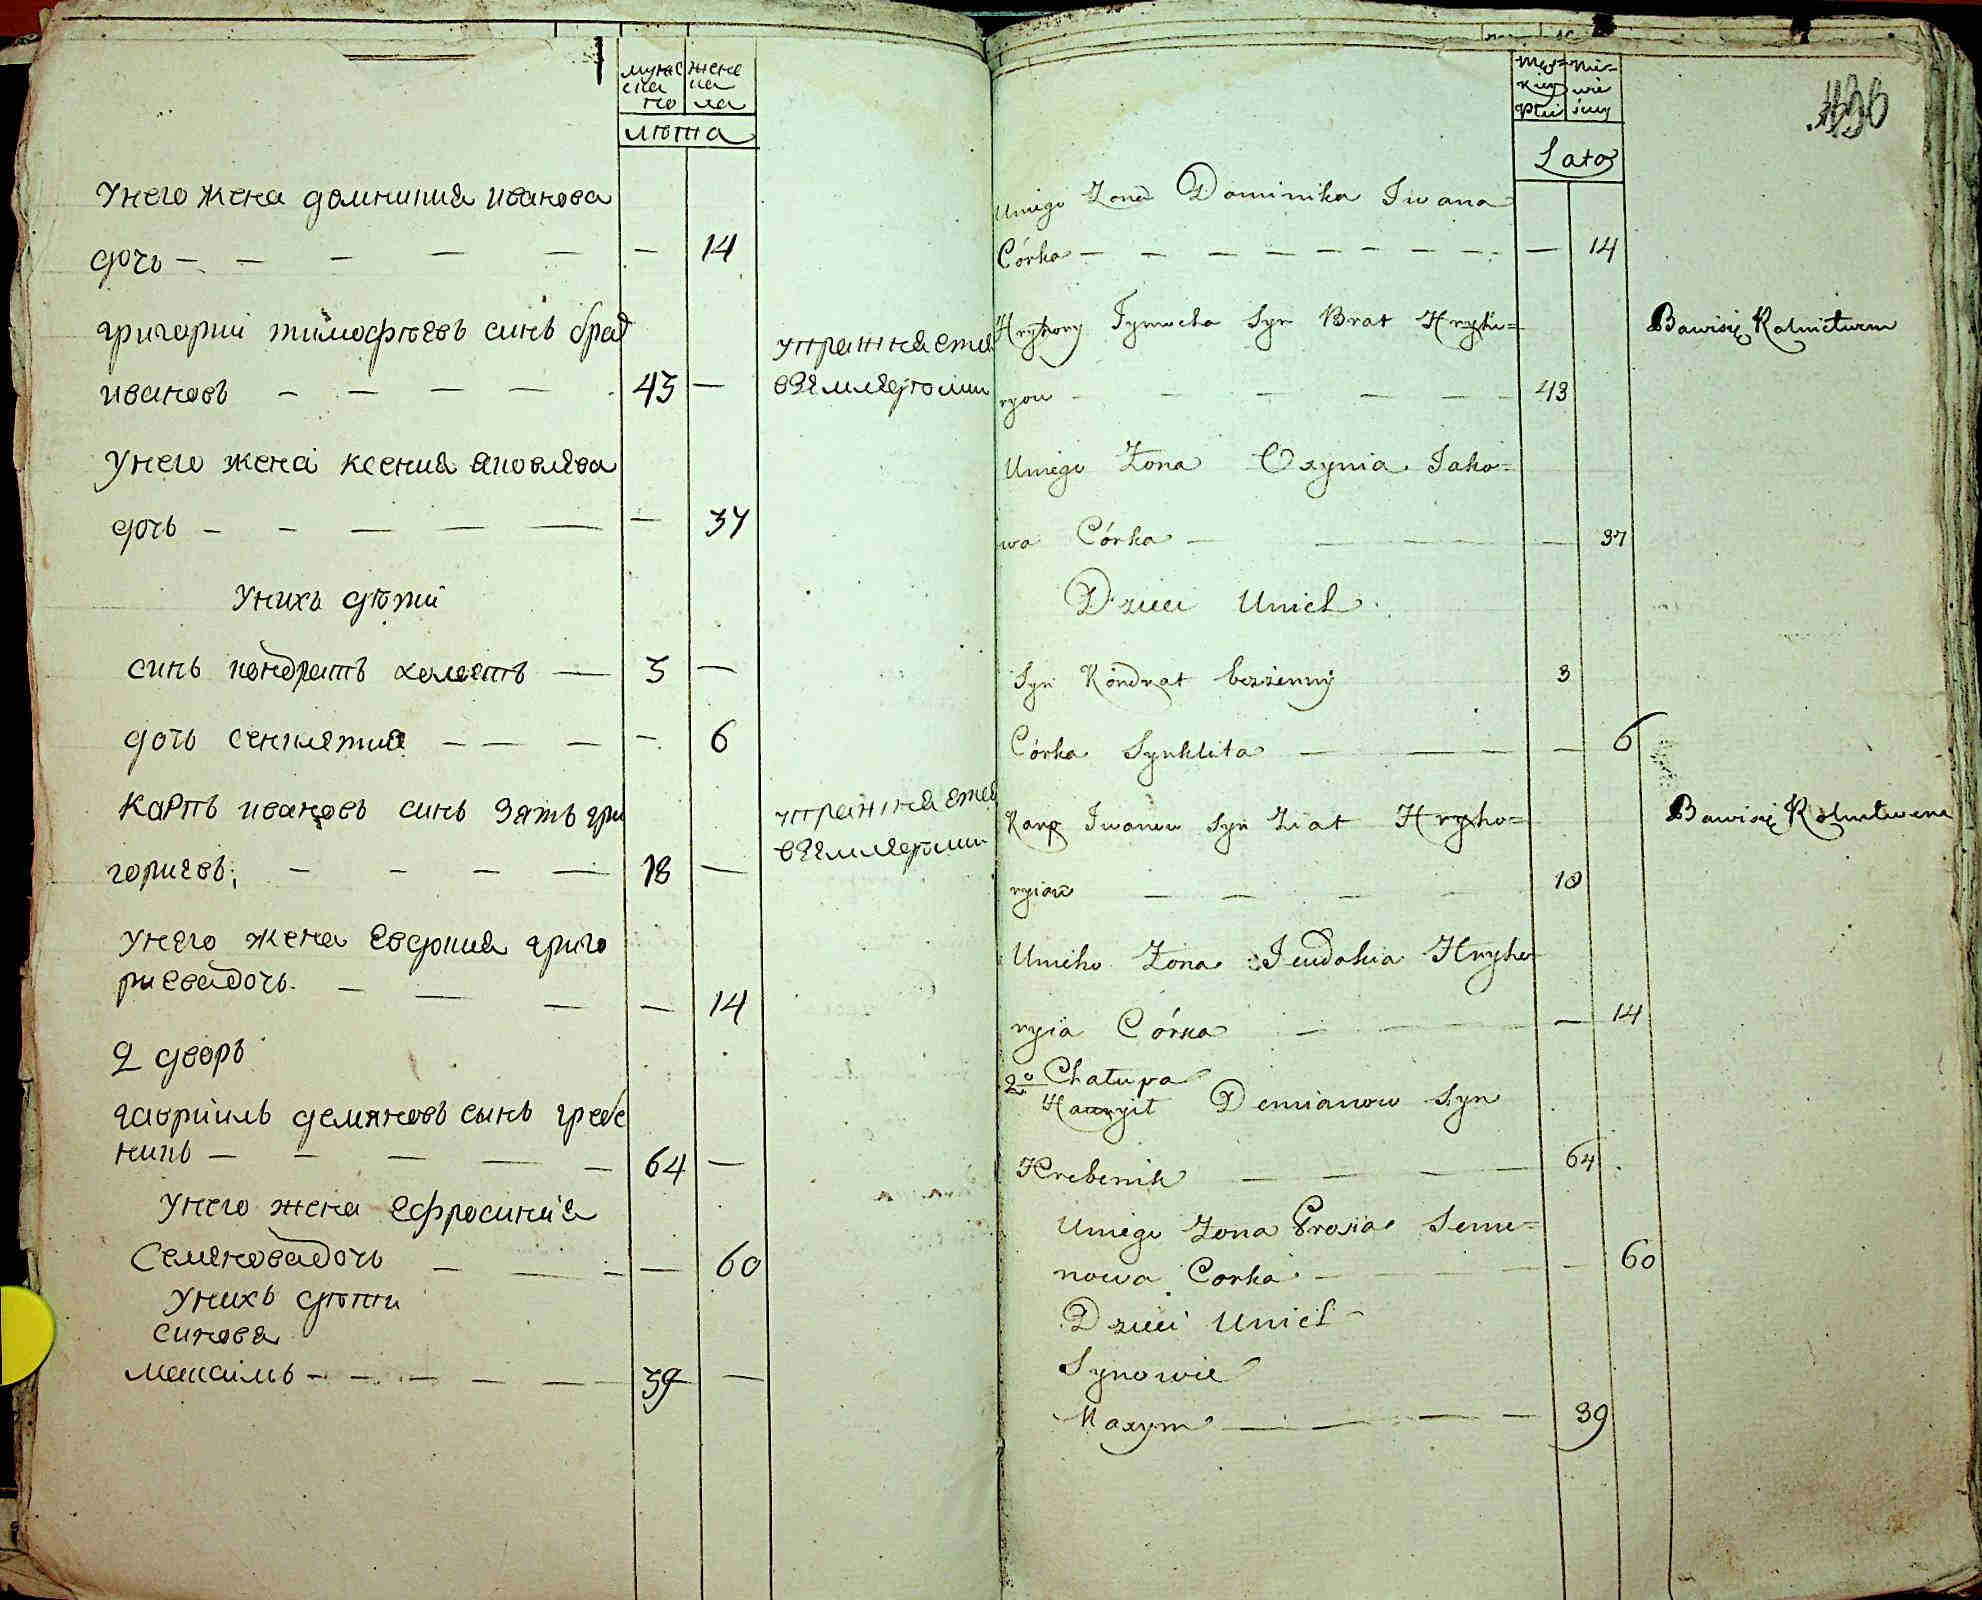 мужеска го
женска ла
лѣта
Унего жена домникия иванова
дочь — — — — — — 14
григорий тимофѣевъ синъ брат
ивановъ — — — — 43 —
упражняется
вземледѣлии
Унего жена ксения яковлева
дочь — — — — — — 37
Унихъ дѣти
синъ кондратъ холостъ — 3 —
дочь сенклетия — — — — 6
Карпъ ивановъ синъ Зять гри
горіевъ; — — — — 18 —
упражняется
вземледѣлии
Унего жена Евдокия григо
риевадочь. — — — — 14
2 дворъ
гавриилъ демяновъ сынъ гребе
никъ — — — — — 64 —
Унего жена Ефросиния
Семеновадочь — — — — 60
Унихъ дѣти
синовя
максимъ — — — — — 39 —
Męs=
kiey
płci
Lata
Uniego Żona Dominika Iwana
Córka — — — — — — — — 14
Hryhory Tymocha Syn Brat Hryho=
ryow — — — — — 43
Bawisię Rolnictwem
Uniego Żona Oxynia Jako=
wa Córka — — — — — 37
Dzieci Unich
Syn Kondrat bezżenny 3
Córka Synklita — — — — 6
Karp Iwanow Syn Ziat Hryho=
ryiow — — — — 18
Bawisię Rolnictwem
Unieho Żona Jewdokia Hryho
ryia Córka — — — — 14
2o Chałupa
Hawryił Demianow Syn
Hrebenik — — — — 64
Uniego Żona Prosia Seme=
nowa Corka — — — 60
Dzieci Unich
Synowie
Maxym — — — — 39